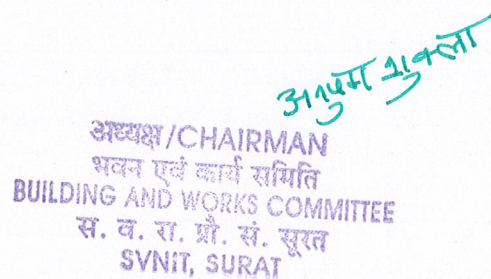 अनुपम शुक्ला
अध्यक्ष/CHAIRMAN
भवन एवं कार्य समिति
BUILDING AND WORKS COMMITTEE
स. व. रा. प्रौ. सं. सूरत
SVNIT, SURAT